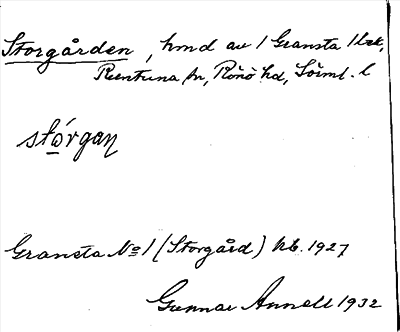 Storgården, hmd av 1 Gransta 1 bok,
Runtuna sn, Rönö hd, Söml. l
stórgan
Gransta No 1 (Storgård) kb. 1927
Gunnar Annell 1932